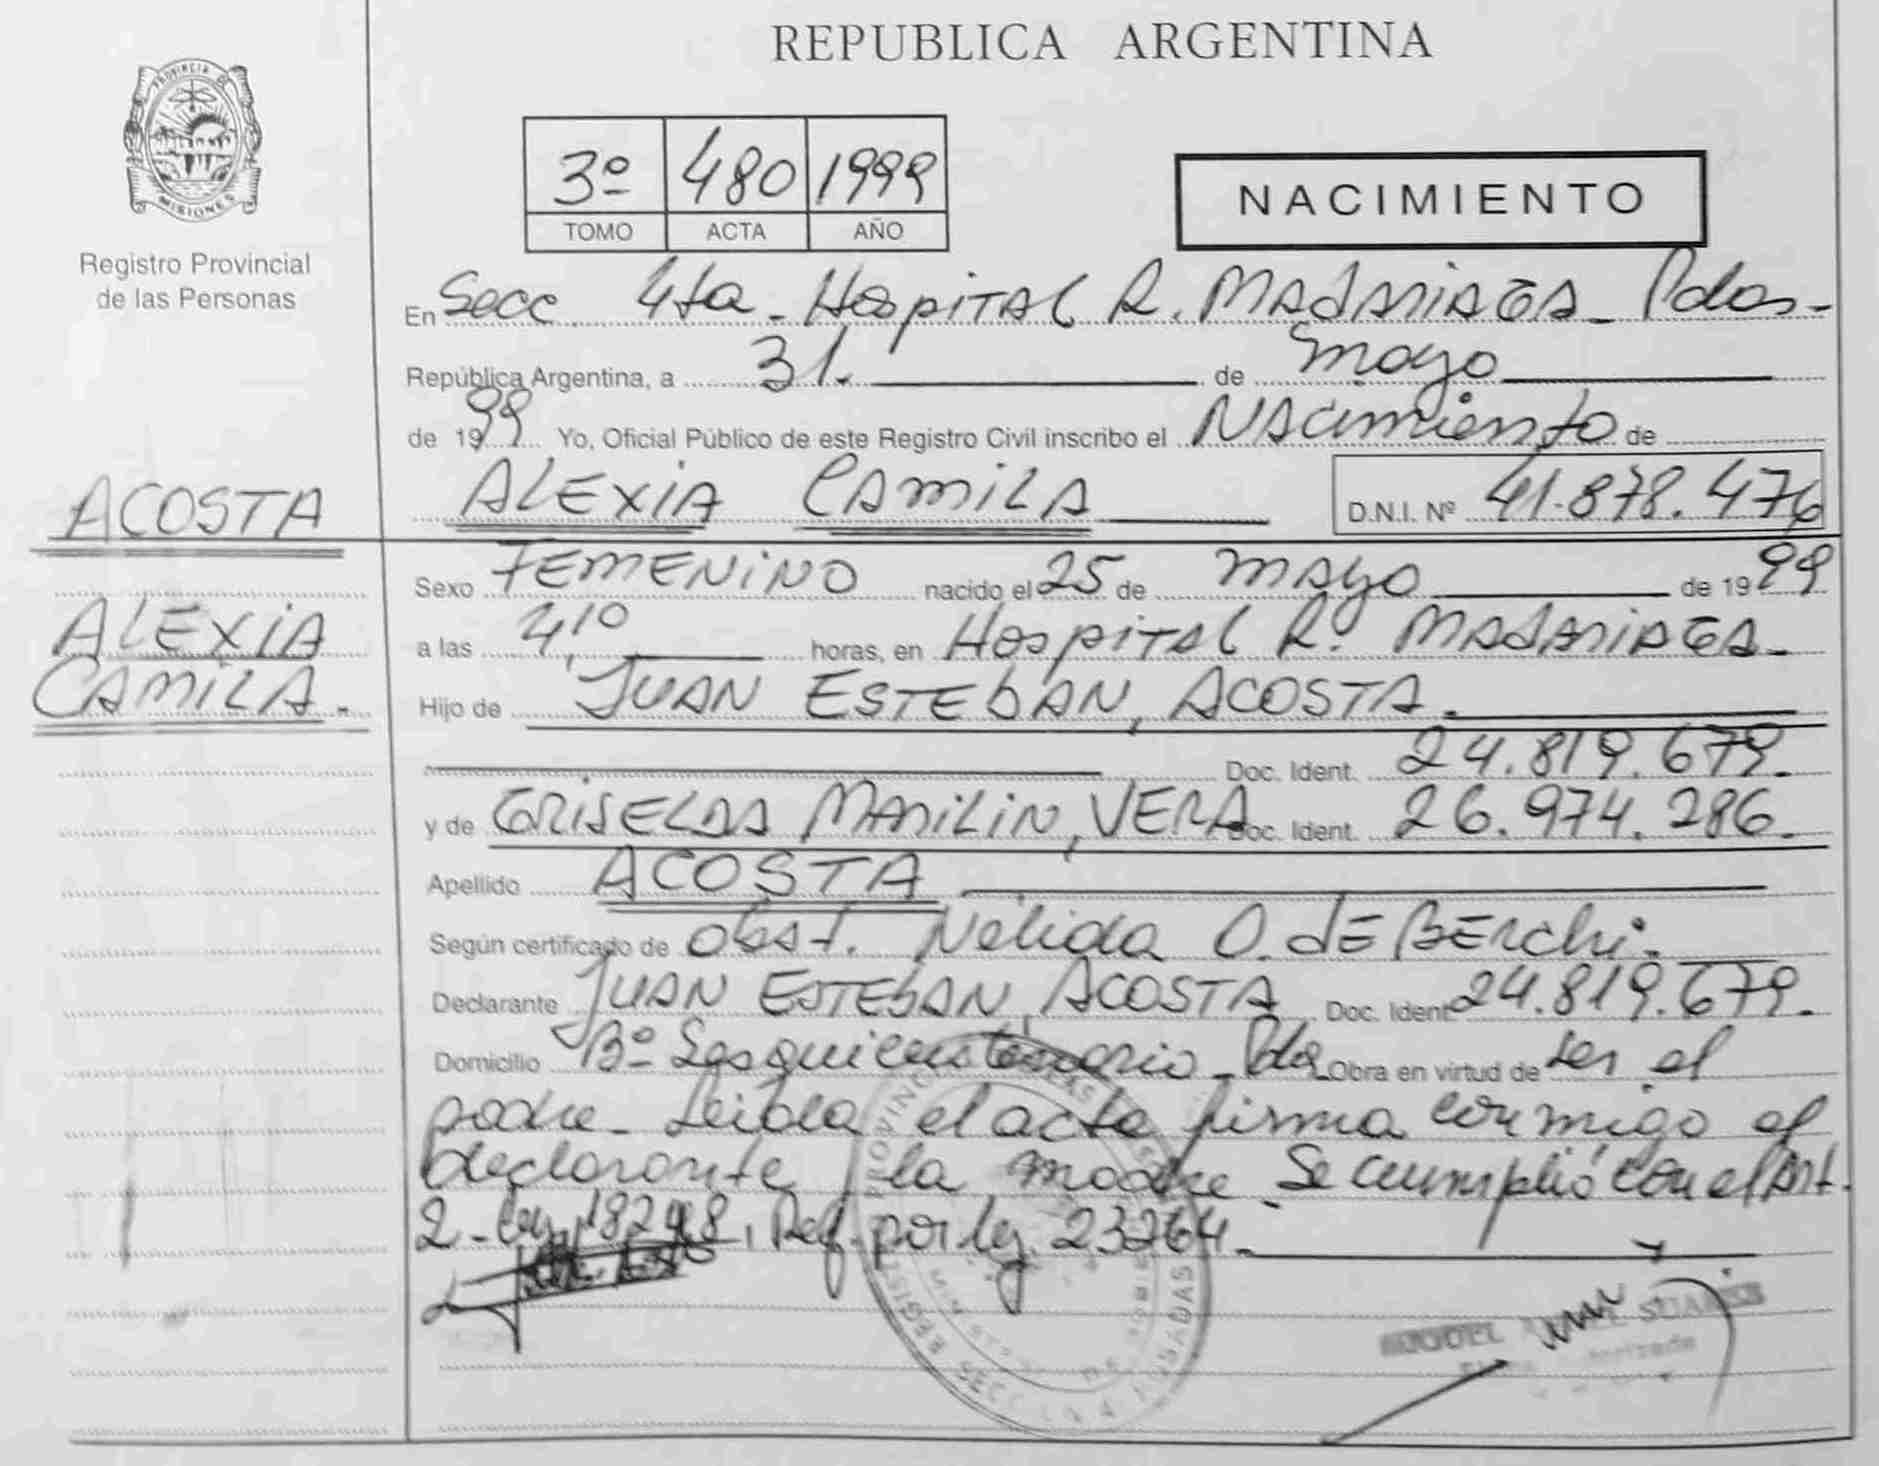 REPUBLICA ARGENTINA
PROVINCIA DE
MISIONES
Registro Provincial
de las Personas
3º 480 1999
TOMO ACTA AÑO
NACIMIENTO
En Secc 4ta - Hospital R. MADARIAGA - Pdas -
República Argentina, a 31. de mayo
de 1999 Yo, Oficial Público de este Registro Civil inscribo el NAcimiento de
ALEXIA CAMILA D.N.I. Nº 41.878.476
ACOSTA
ALEXIA
CAMILA.
Sexo FEMENINO nacido el 25 de mayo de 1999
a las 4,10 horas, en Hospital R. MADARIAGA -
Hijo de JUAN ESTEBAN, ACOSTA.
Doc. Ident. 24.819.679.
y de GRISELDA MARILIN, VERA Doc. Ident. 26.974.286.
Apellido ACOSTA
Según certificado de obst. Nelida O. dE BERchi.
Declarante JUAN ESTEBAN, ACOSTA Doc. Ident 24.819.679.
Domicilio Bº Sesquicentenario - Pdas Obra en virtud de ser el
padre - Leida el acta firma conmigo el
declarante y la madre - Se cumplió con el Art.
2 - Ley 18248, Ref. por ley 23264 -
SUAREZ